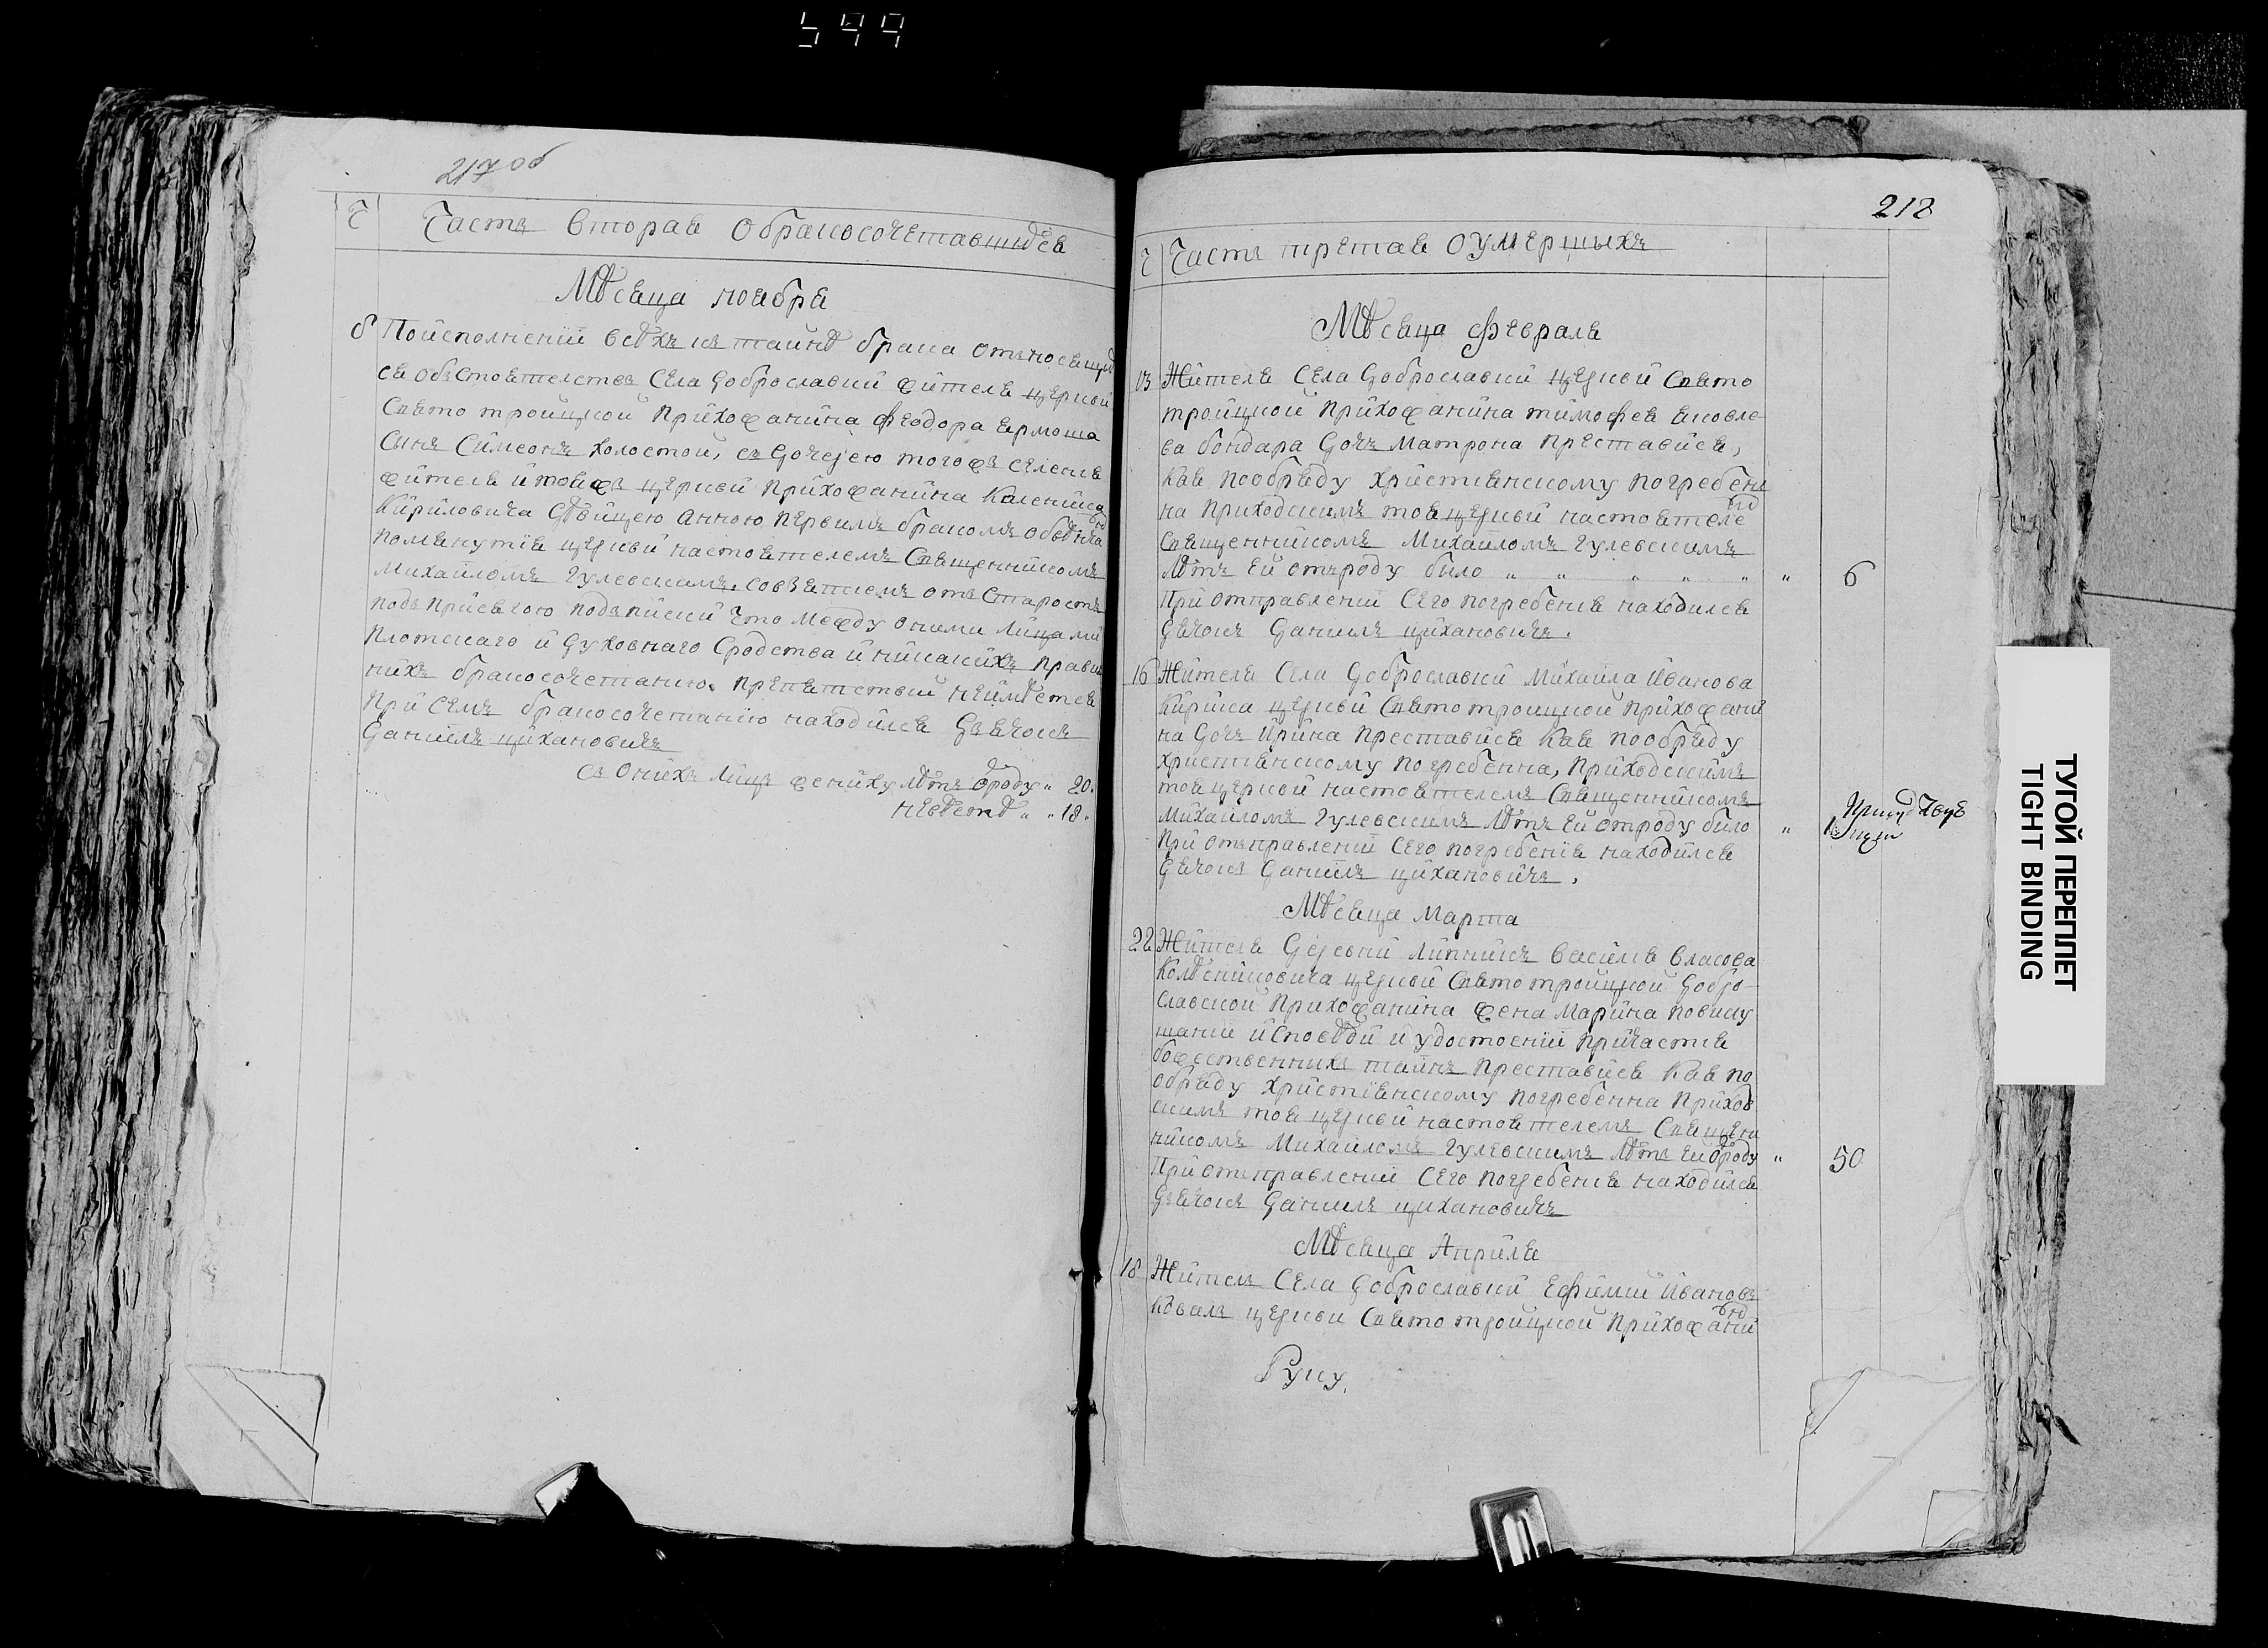 217 об
Ч Часть вторая о бракосочетавшихся
Мѣсяца ноября
8 По исполненіи всѣхъ къ тайнѣ брака относящих
ся обстоятелствъ Села Доброславки жителя церкви
Свято троицкой прихожанина Феодора Ермоша
Сынъ Симеонъ холостой, съ дочерею тогожъ селенія
жителя и тояжъ церкви прихожанина
Кириловича дѣвицею Анною первимъ бракомъ
помянутія церкви настоятелемъ Священникомъ
Михаиломъ Гулевскимъ, со взятіемъ отъ Старостъ
подъ присягою подъписки что между оними лицами
плотскаго и духовнаго сродства и никакихъ
нихъ бракосочетанію препятствій неимѣется
При семъ бракосочетанію находился дьячокъ
Даниилъ Циханович
съ онихъ лицъ жениху лѣтъ отроду " 20.
невѣстѣ " " 18.
218
Ч Часть третая о умершыхъ
Мѣсяца Февраля
13 Жителя Села Доброславки церкви Свято
троицкой прихожанина Тимофея Яковле
ва Бондара дочь Матрона преставися,
кая по обряду християнскому погребен
на приходскимъ тоя церкви настоятеле
Священникомъ Михаиломъ Гулевскимъ
Лѣтъ ей отъроду било " " " " " " 6
При отправленіи сего погребенія находился
дячокъ Даниилъ Цихановичъ.
16 Жителя Села Доброславки Михаила Иванова
церкви Свято троицкой прихожани
на дочь Ирина преставися кая по обряду
християнскому погребенна, приходскимъ
тоя церкви настоятелемъ Священникомъ
Михаиломъ Гулевскимъ лѣтъ ей отроду било "
При отъправленіи сего погребенія находился
дячокъ Даниилъ Цихановичъ.
Мѣсяца Марта
22 Жителя деревни Липникъ Василія Власова
церкви Свято троицкой добро
славской прихожанина жена Марина по вислу
шаніи исповѣди и удостоеніи причастія
божественнихъ тайнъ преставися кая по
обряду християнскому погребенна приход
скимъ тоя церкви настоятелемъ Священ
никомъ Михаиломъ Гулевскимъ лѣтъ ей отроду " 50
При отъправленіи сего погребенія находился
дьячокъ Даниилъ Цихановичъ
Мѣсяца Апрѣля
18 Житель Села Доброславки Ефимий Ивановъ
Коваль церкви Свято троицкой прихожани
Руку
ТУГОЙ ПЕРЕПЛЕТ
TIGHT BINDING